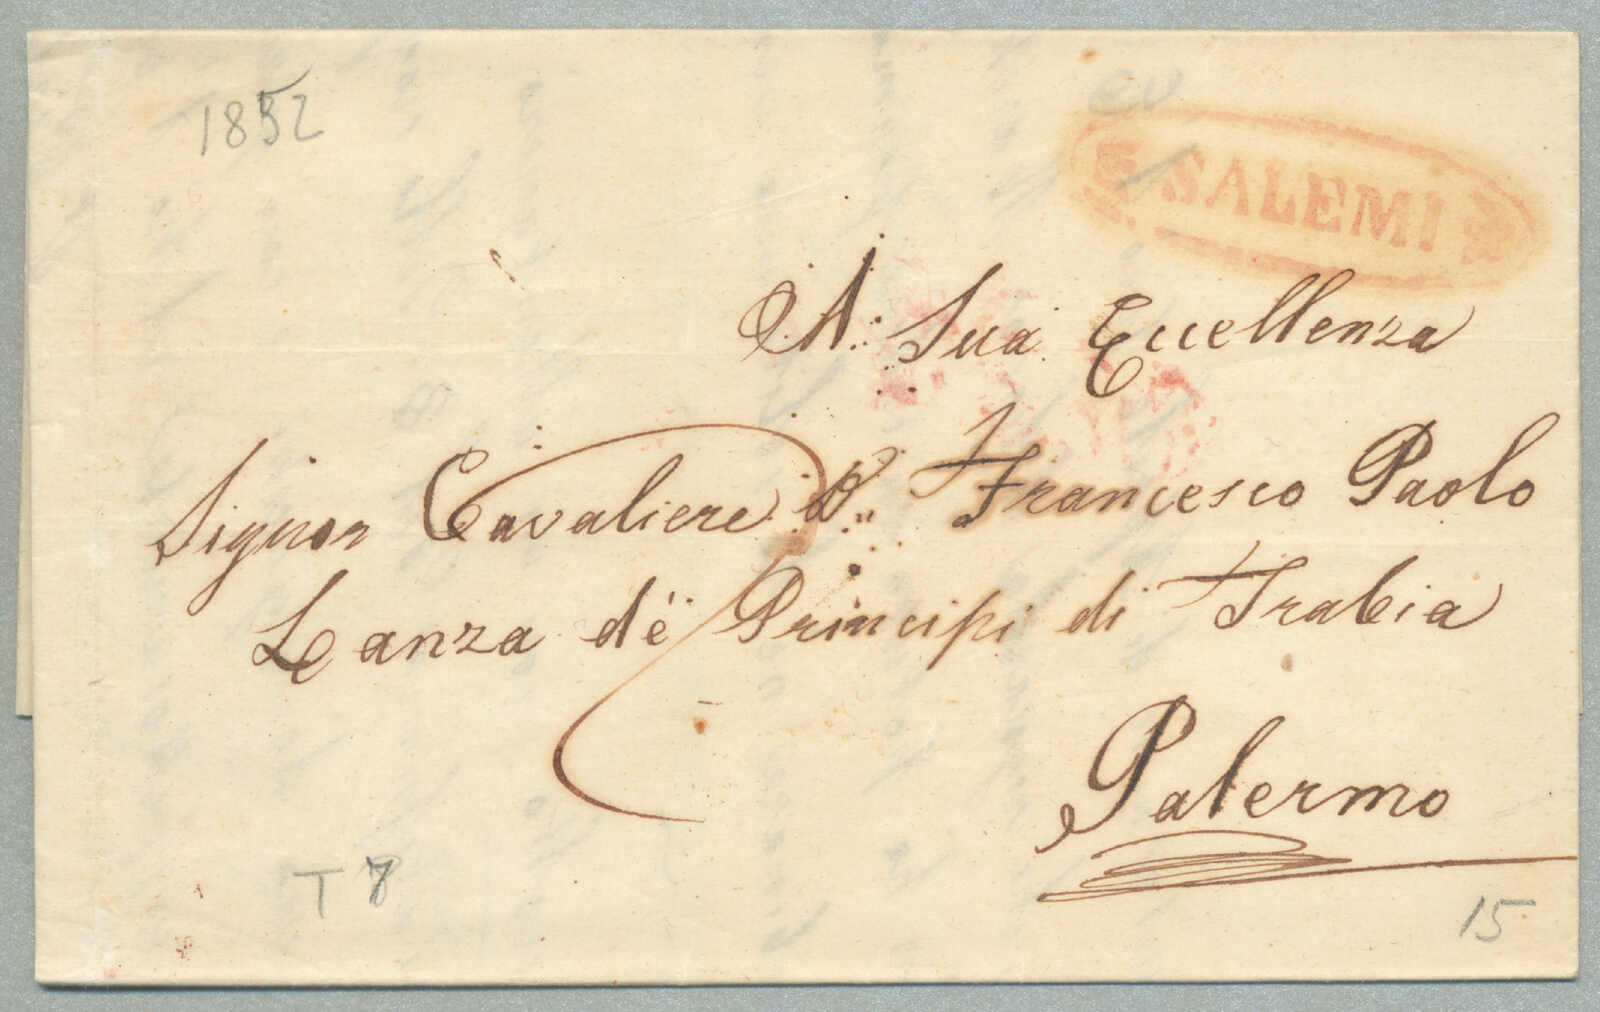 1852
SALEMI
A Sua Eccellenza
Signor Cavaliere Dn Francesco Paolo
Lanza de' Principi di Trabia
Palermo
T 7
15